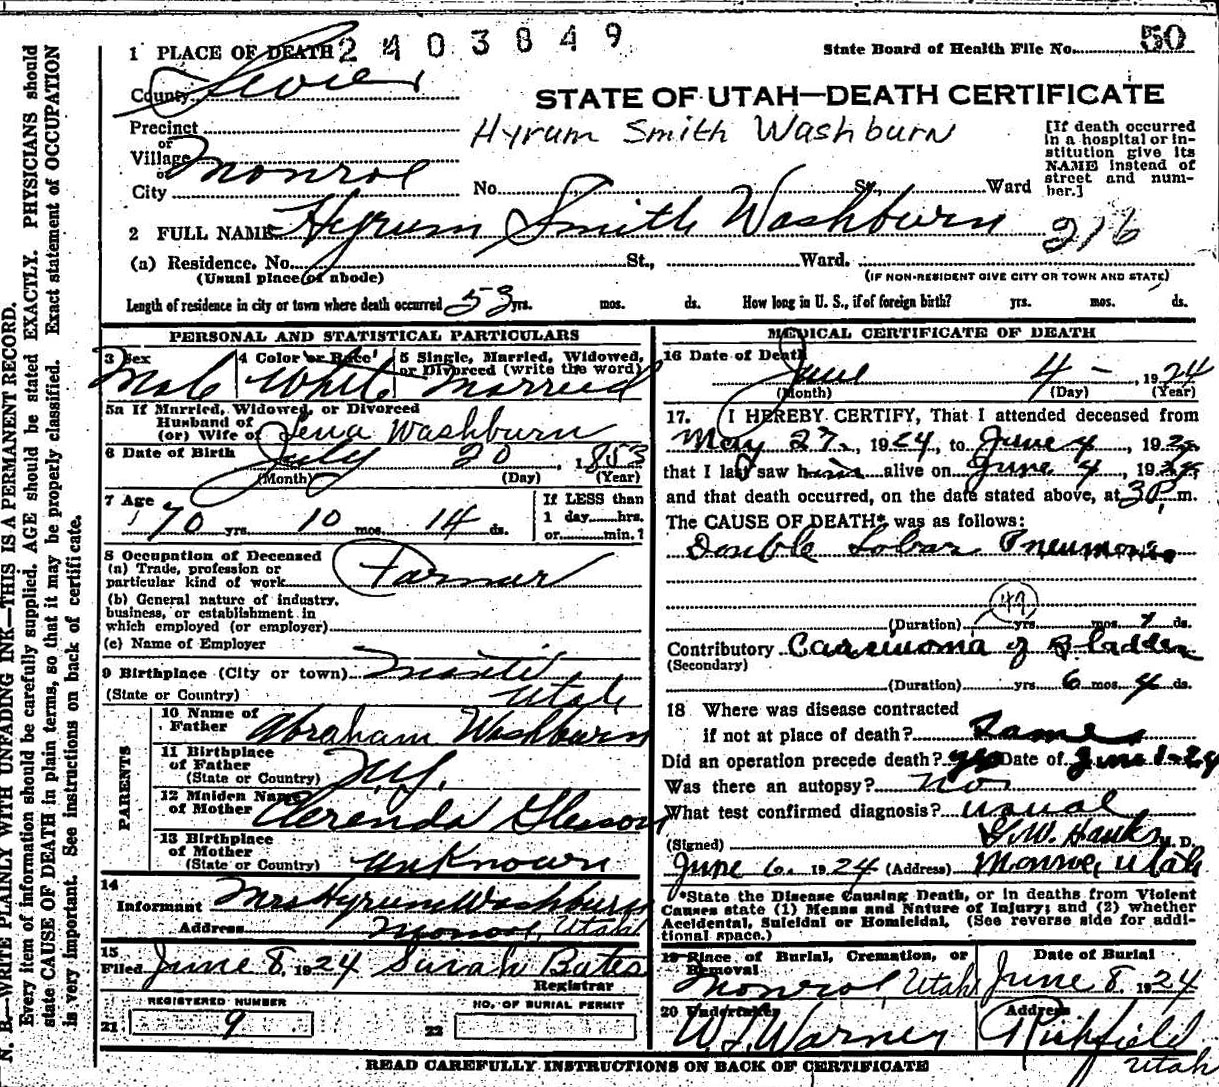 1 PLACE OF DEATH 2403849
State Board of Health File No. 50
County Sevier
STATE OF UTAH—DEATH CERTIFICATE
Precinct
or
Village
or
City Monroe
Hyrum Smith Washburn
[If death occurred in a hospital or institution give its NAME instead of street and number.]
No. St., Ward
2 FULL NAME Hyrum Smith Washburn 216
(a) Residence. No. St., Ward.
(Usual place of abode) (IF NON-RESIDENT GIVE CITY OR TOWN AND STATE)
Length of residence in city or town where death occurred 53 yrs. mos. ds. How long in U. S., if of foreign birth? yrs. mos. ds.
PERSONAL AND STATISTICAL PARTICULARS
3 Sex 4 Color or Race 5 Single, Married, Widowed, or Divorced (write the word)
Male White Married
5a If Married, Widowed, or Divorced
Husband of
(or) Wife of Lena Washburn
6 Date of Birth July 20, 1853
(Month) (Day) (Year)
7 Age If LESS than
70 yrs. 10 mos. 14 ds. 1 day......hrs.
or......min.?
8 Occupation of Deceased
(a) Trade, profession or
particular kind of work Farmer
(b) General nature of industry,
business, or establishment in
which employed (or employer)
(c) Name of Employer
9 Birthplace (City or town) Manti
(State or Country) Utah
PARENTS
10 Name of
Father Abraham Washburn
11 Birthplace
of Father
(State or Country) N.Y.
12 Maiden Name
of Mother
13 Birthplace
of Mother
(State or Country) Unknown
14
Informant Mrs Hyrum Washburn
Address Monroe, Utah
15
Filed June 8, 1924 Sarah Bates
Registrar
REGISTERED NUMBER NO. OF BURIAL PERMIT
21 9 22
MEDICAL CERTIFICATE OF DEATH
16 Date of Death
June 4 - , 1924
(Month) (Day) (Year)
17. I HEREBY CERTIFY, That I attended deceased from
May 27, 1924, to June 4, 192
that I last saw him alive on June 4, 1924
and that death occurred, on the date stated above, at 3 P. m.
The CAUSE OF DEATH* was as follows:
Double Lobar Pneumonia
49
(Duration) yrs. mos. 7 ds.
Contributory Carcinoma of Bladder
(Secondary)
(Duration) yrs. 6 mos. 4 ds.
18 Where was disease contracted
if not at place of death? Same
Did an operation precede death? yes Date of June 1-24
Was there an autopsy? No
What test confirmed diagnosis? usual
(Signed) G.W. Hanks M. D.
June 6, 1924 (Address) Monroe, Utah
*State the Disease Causing Death, or in deaths from Violent
Causes state (1) Means and Nature of Injury; and (2) whether
Accidental, Suicidal or Homicidal. (See reverse side for addi-
tional space.)
19 Place of Burial, Cremation, or Removal Date of Burial
Monroe, Utah June 8, 1924
20 Undertaker Address
W.J. Warner Richfield
Utah
READ CAREFULLY INSTRUCTIONS ON BACK OF CERTIFICATE
N. B.—WRITE PLAINLY WITH UNFADING INK—THIS IS A PERMANENT RECORD.
Every item of information should be carefully supplied. AGE should be stated EXACTLY. PHYSICIANS should
state CAUSE OF DEATH in plain terms, so that it may be properly classified. Exact statement of OCCUPATION
is very important. See instructions on back of certificate.